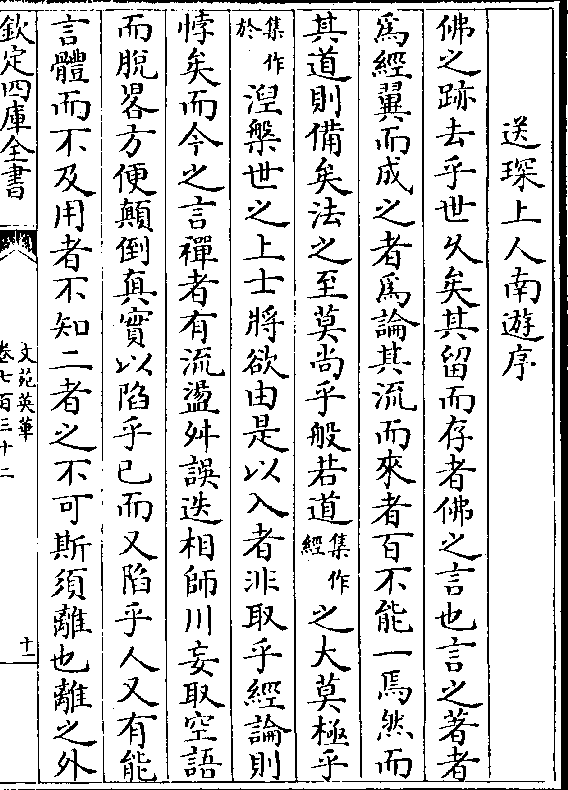 送琛上人南遊序
佛之跡去乎世久矣其留而存者佛之言也言之著者
爲經翼而成之者爲論其流而來者百不能一焉然而
其道則備矣法之至莫尚乎般若道集作經之大莫極乎
集作於湼槃世之上士將欲由是以入者非取乎經論則
悖矣而今之言禪者有流盪舛誤迭相師川妄取空語
而脫畧方便顛倒真實以陷乎已而又陷乎人又有能
言體而不及用者不知二者之不可斯須離也離之外
欽定四庫全書
文苑英華
卷七百三十二
十一